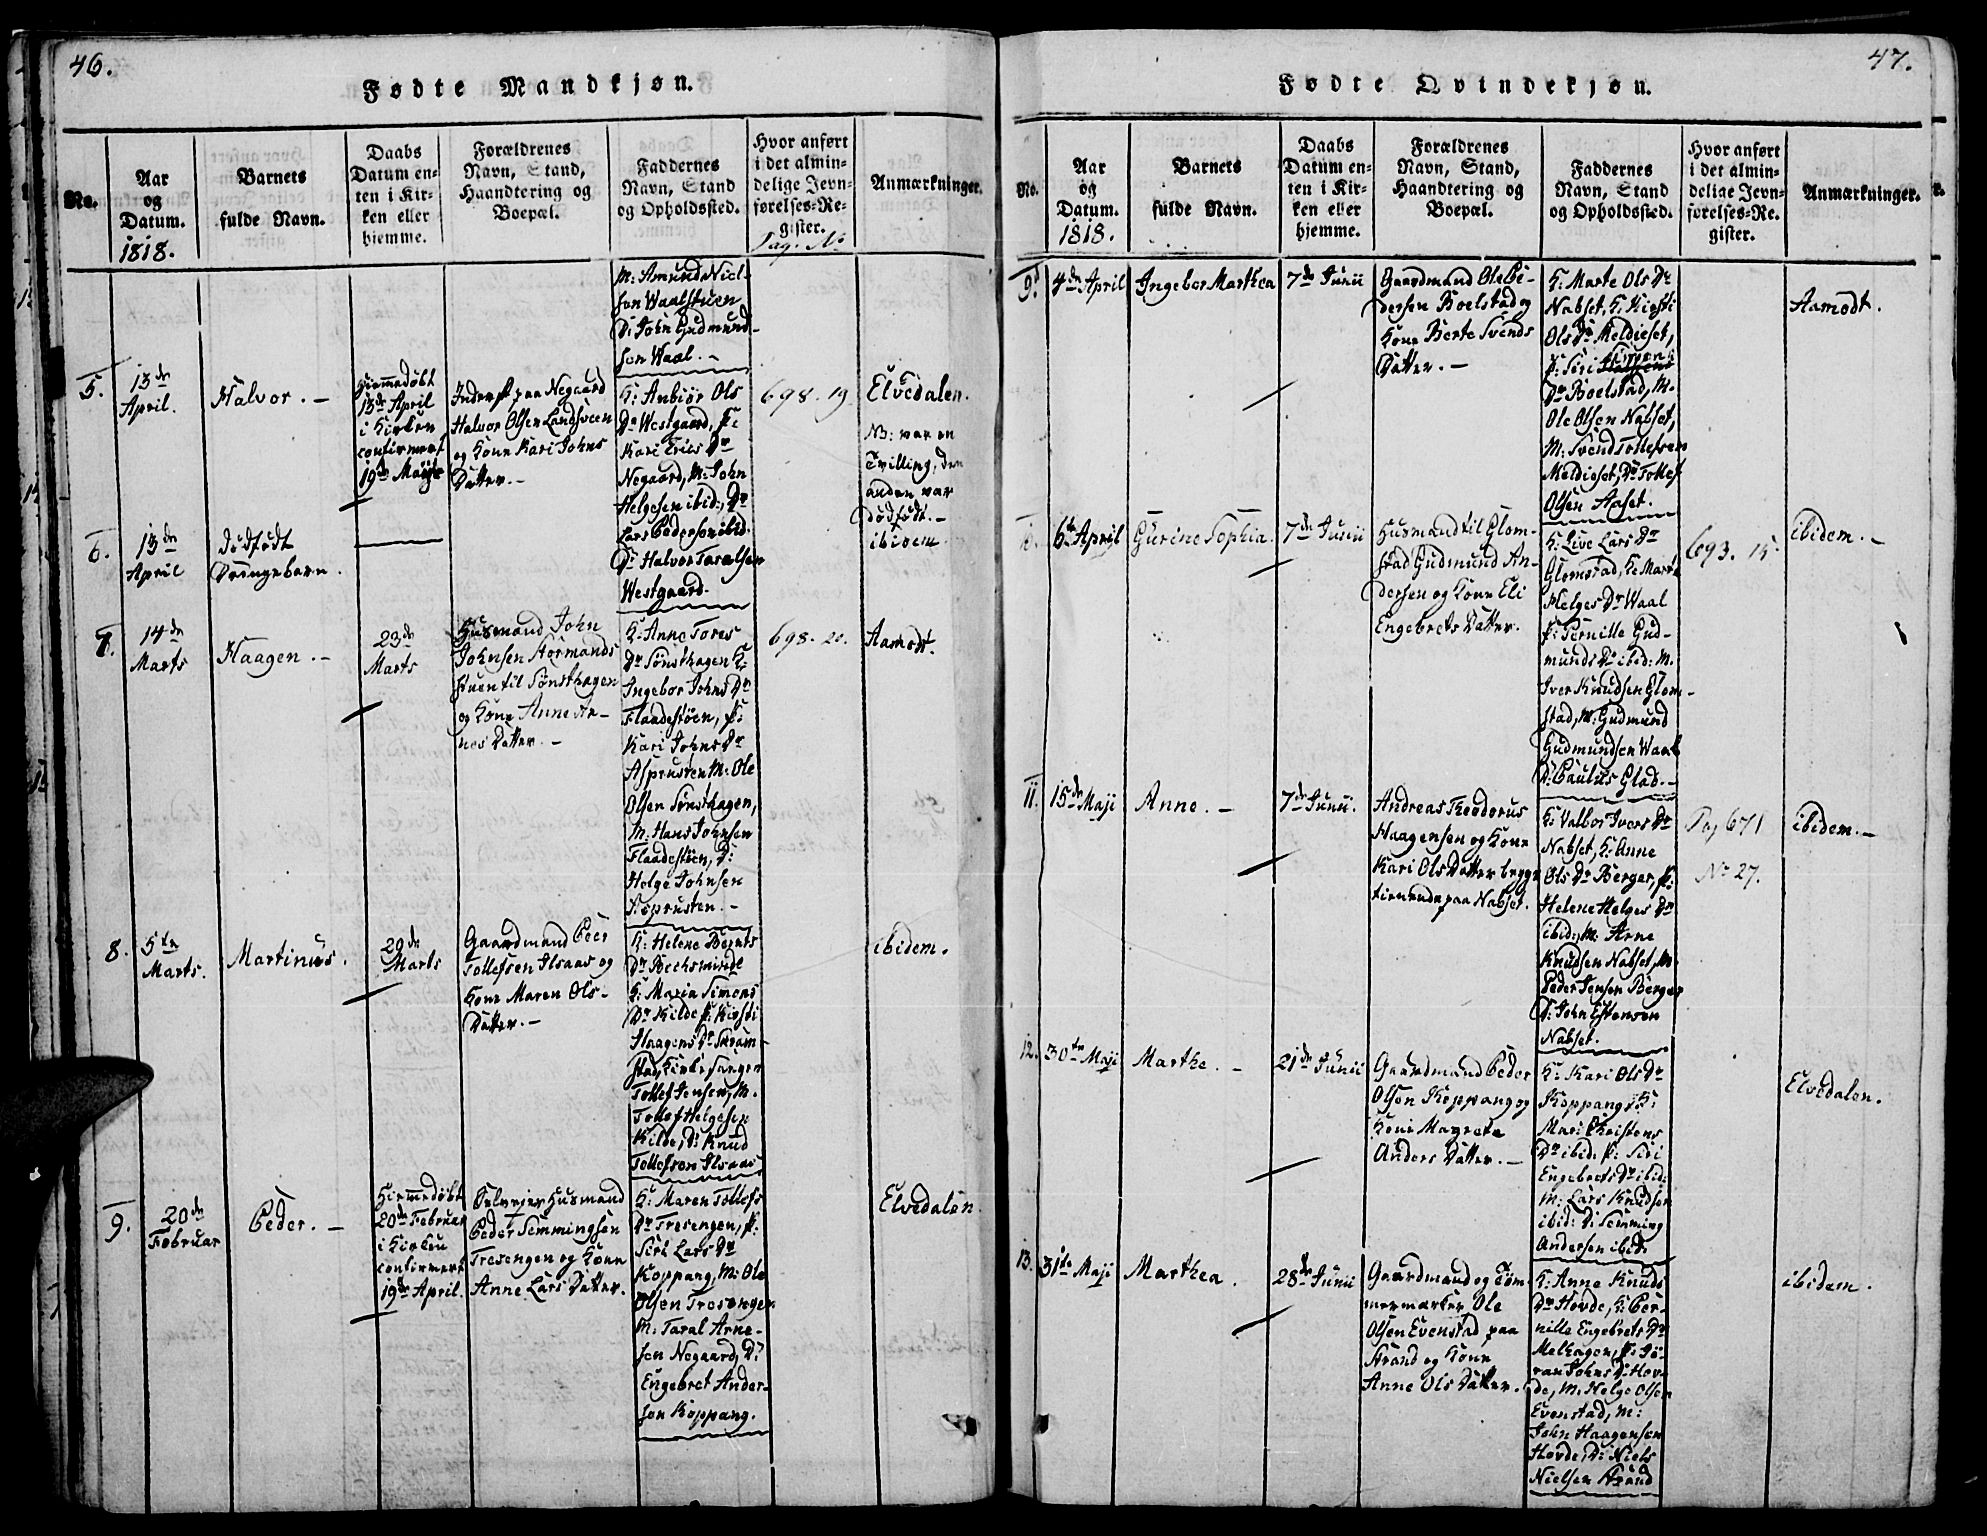 46.
Fødte Mandkjøn.
No.
Aar
og
Datum.
1818.
Barnets
fulde Navn.
Daabs
Datum en-
ten i Kir-
ken eller
hjemme.
Forældrenes
Navn, Stand,
Haandtering og
Boepæl.
Faddernes
Navn, Stand
og Opholdssted.
Hvor anført
i det almin-
delige Jevn-
førelses-Re-
gister.
Pag. No
Anmærkninger.
M: Amund Niel-
sen Waalstuen
D: John Gudmund-
sen Waal. -
5.
13de
April.
Halvor. -
Hiemmedøbt
13de April
i Kirken
confirmert
19de Maji
Inderst paa Negaard
Halvor Olsen Landsveen
og Kone Kari Johns
Datter. -
K: Anbiør Ols
Dr Westgaard, P:
Kari Erics Dr
Negaard, M: John
Helgesen ibid:, Dr
Lars Pedersen ibid.
D: Halvor Taralsen
Westgaard.
698. 19.
Elvedalen.
NB: var en
Tvilling, den
anden var
dødfødt. -
6.
13de
April
dødfødt
Drengebarn.
ibidem.
7.
14de
Marts
Haagen. -
23de
Marts
Husmand John
Johnsen Stormands
stuen til Sønsthagen
og Kone Anne Ar-
nes Datter. -
K: Anne Tores
Dr Sønsthagen K:
Ingebor Johns Dr
Flaadestøen, P:
Kari Johns Dr
Asprusten M: Ole
Olsen Sønsthagen,
M: Hans Johnsen
Flaadestøen, D:
Helge Johnsen
Asprusten. -
698. 20.
Aamodt.
8.
5te
Marts.
Martinus.
29de
Marts
Gaardmand Peer
Tollefsen Ilsaas og
Kone Maren Ols-
Datter. -
K: Helene Bernts
Dr Bechsminde
K: Maria Simens
Dr Kilde P: Kirsti
Haagens Dr Skram-
stad, Kirkesanger
Tollef Jensen, M.
Tollef Helgesen
Kilde, D: Knud
Tollefsen Ilsaas
ibidem.
9.
20de
Februar
Peder. -
Hiemmedøbt
20de Februar
i Kirken
confirmert
19de April.
Selveier Husmand
Peder Semmingsen
Tresengen og Kone
Anne Lars Datter.
K: Maren Tollefs
Dr Tresengen, P:
Siri Lars Dr
Koppang, M: Ole
Olsen Tresengen
M: Taral Arne-
sen Negaard, D:
Engebret Ander-
sen Koppang.
Elvedalen.
47.
Fødte Qvindekjøn.
No.
Aar
og
Datum.
1818.
Barnets
fulde Navn.
Daabs
Datum en-
ten i Kir-
ken eller
hjemme.
Forældrenes
Navn, Stand,
Haandtering og
Boepæl.
Faddernes
Navn, Stand
og Opholdssted.
Hvor anført
i det almin-
delige Jevn-
førelses-Re-
gister.
Anmærkninger.
9.
4de April
Ingebor Marthea
7de Junii
Gaardmand Ole Pe-
dersen Boelstad og
Kone Berte Svends
Datter. -
K: Marte Ols Dr
Nabset, K: Kiersti
Ols Dr Meldieset,
P: Siri Simens
Dr Boelstad, M.
Ole Olsen Nabset,
M: Svend Tollefsen
Meldieset, D: Tollef
Olsen Aaset.
Aamodt.
10.
6te April
Gurine Sophia.
7de Junii
Husmand til Glom-
stad Gudmund An-
dersen og Kone Eli
Engebrets Datter.
K: Live Lars Dr
Glomstad, K: Marte
Helges Dr Waal
P: Pernille Gud-
munds Dr ibid: M.
Iver Knudsen Glom-
stad, M: Gudmund
Gudmundsen Waal
D: Paulus Glad. -
693. 15.
ibidem. -
11.
15de Maji
Anne. -
7de Junii.
Andreas Theodorus
Haagensen og Kone
Kari Ols Datter, byg-
tiemende paa Nabset.
K: Valbor Ivers Dr
Nabset, K: Anne
Ols Dr Berger, P:
Helene Helges Dr
ibid:, M: Arne
Knudsen Nabset, M:
Peder Jensen Berger
D: John Estensen
Nabset.
Pag 671
No 27.
ibidem. -
12.
30te Maji
Marthe. -
21de Junii
Gaardmand Peder
Olsen Koppang og
Kone Magrete
Anders Datter. -
K: Kari Ols Dr
Koppang, K:
Mari Christens
Dr ibid: P: Siri
Engebrets Dr ibid:
M: Lars Knudsen
ibid: D: Semming
Andersen ibid:
Elvedalen.
13.
31te Maji
Marthea.
28de Junii
Gaardmand og Tøm-
mermerker Ole
Olsen Evenstad paa
Strand og Kone
Anne Ols Datter.
K: Anne Knuds
Dr Hovde, K: Per-
nille Engebrets Dr
Melhagen, P: Gø-
ran Johns Dr Hov-
de, M: Helge Olsen
Evenstad, M:
John Haagensen
Hovde, D: Niels
Nielsen Strand
ibidem.